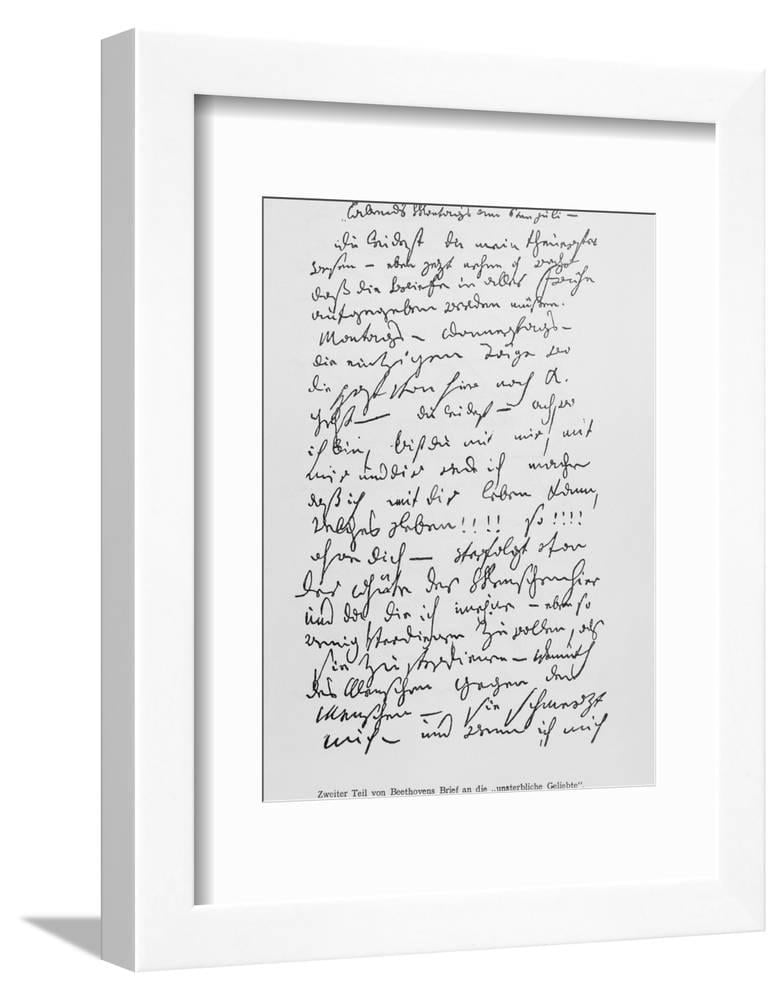 Abends Montags am 6ten juli –
Du leidest du mein theuerstes
wesen – eben jezt nehme ich wahr
daß die Briefe in aller Frühe
aufgegeben werden müßen.
Montags – Donnerstags –
die eintzigen Täge wo
die Post von hier nach K.
geht – du leidest – ach, wo
ich bin, bist du mit mir, mit
mir und dir rede ich mache
daß ich mit dir leben kann,
welches Leben!!!! so!!!!
ohne dich – verfolgt von
der Güte der Menschen hier
und da, die ich meyne – eben so
wenig verdienen zu wollen, als
sie zu verdienen – Demuth
des Menschen gegen den
Menschen – sie schmerzt
mich – und wenn ich mich
Zweiter Teil von Beethovens Brief an die „unsterbliche Geliebte".